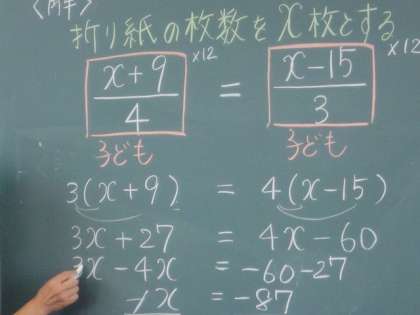 〈問〉
折り紙の枚数をx枚とする
(x+9)/4 ×12 = (x-15)/3 ×12
子ども 子ども
3(x+9) = 4(x-15)
3x+27 = 4x-60
3x-4x = -60-27
-x = -87